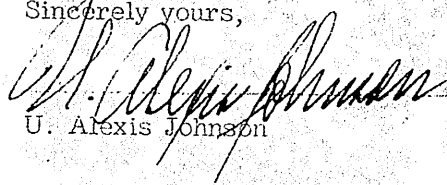 Sincerely yours,
U. Alexis Johnson
U. Alexis Johnson